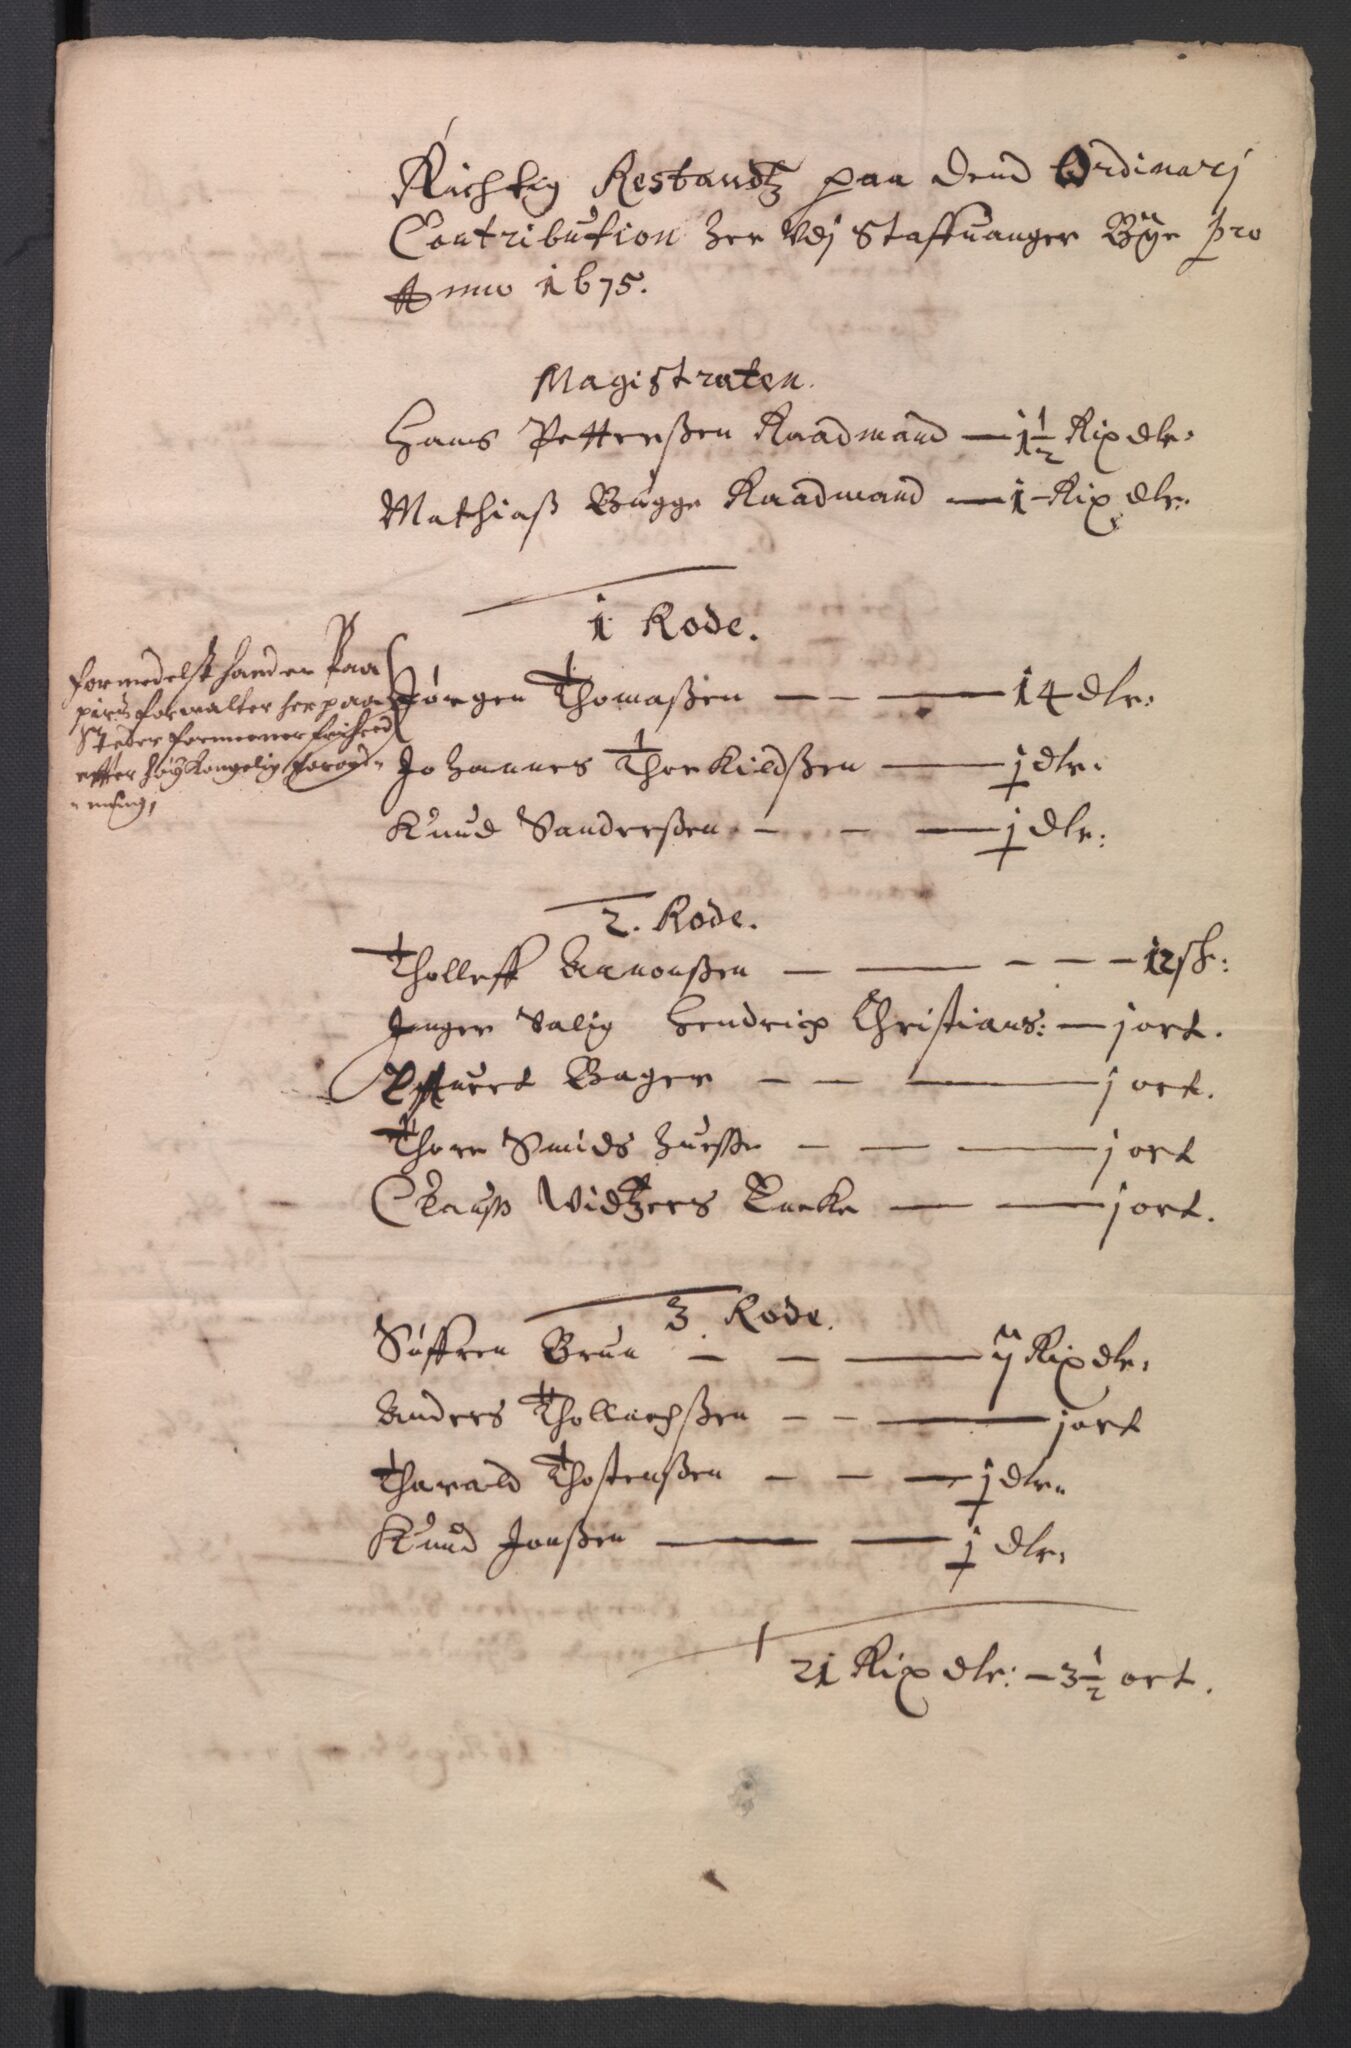 Richtig Restandtz paa Dend Ordinarj
Contribution her Vdj Staffuanger Bÿe pro
Anno 1675.
Magistraten.
Hans Petterßen Raadmand — 1 1/2 Rixdlr:
Mathiaß Bugge Raadmand — 1 Rixdlr:
1 Rode.
formedelst hand er Paa
pirs forvalter her paa
Steder formeener frihed
effter høy Kongelig forord=
=ning,
Jørgen Thomaßen — — — 14 dlr:
Johannes Thorkildßen — j dlr:
Knud Sanderßen — — — j dlr:
2. Rode.
Tholleff Aanonßen — — — — — 12 sh:
Inger Salig Hendrich Christians: — j ort.
Effuert Bager — — — j ort.
Thore Smids Hueße — — — j ort
Clauß Widtzers Encke — — j ort.
3 Rode.
Søffren Brun — — — ij Rixdlr:
Anders Thollachßen — — — j ort
Tharald Thostenßen — — — j dlr:
Knud Jonßen — — j dlr:
21 Rixdlr: — 3 1/2 ort.